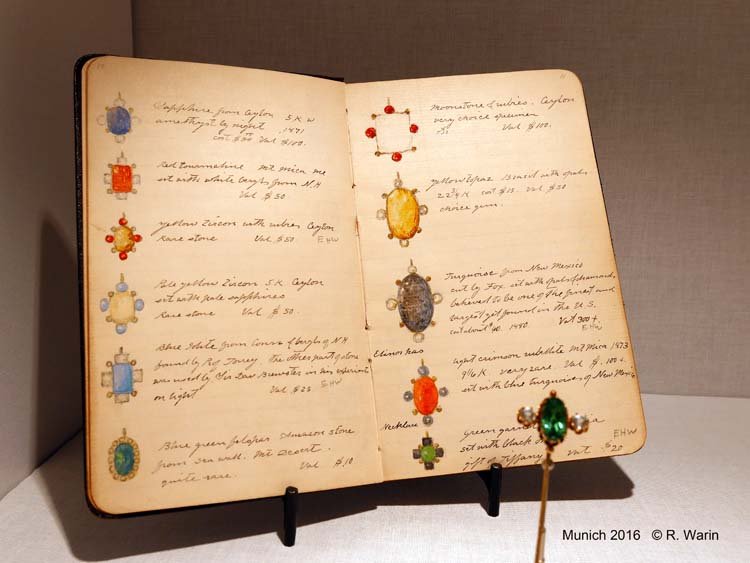 Sapphire from Ceylon 5 K W
amethyst by night 1871
cost $50 Val $100.
Red tourmaline Mt Mica Me
set with white beryls from N.H
Val $50
yellow Zircon with rubies Ceylon
Rare stone Val $50 EHW
Pale yellow Zircon 5 K Ceylon
set with pale sapphires
Rare stone Val $50
Blue Iolite from Conn & beryls of N.H
found by Prof Torrey the other part of stone
was used by Sir Dav Brewster in his experiments
on light Val $25 EHW
Blue green felspar Amazon stone
from sea wall. Mt Desert.
quite rare. Val $10
11
Moonstone & rubies. Ceylon
very choice specimen
Val $100.
yellow topaz Brazil with opals
22 3/4 K cost $15. Val $50
choice gem.
Turquoise from New Mexico
cut by Fox. set with opals & diamonds,
believed to be one of the finest and
largest yet found in the U.S.
cost about $40. 1880. Val 300+.
EHW
Elinor has
light crimson rubellite Mt Mica 1873
9 1/16 K very rare Val $100+.
set with blue turquoises of New Mexico
Necklace
Green
set with black
gift of Tiffany Val $20
EHW
Munich 2016 © R. Warin